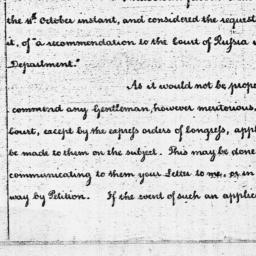 the 4th October instant, and considered the request
it, of "a recommendation to the Court of Russia
Department."
As it would not be prope
commend any Gentleman, however meritorious,
Court, except by the express orders of Congress, appl
be made to them on the subject. This may be done
communicating to them your Letter to me, or in
way by Petition. If the event of such an applic